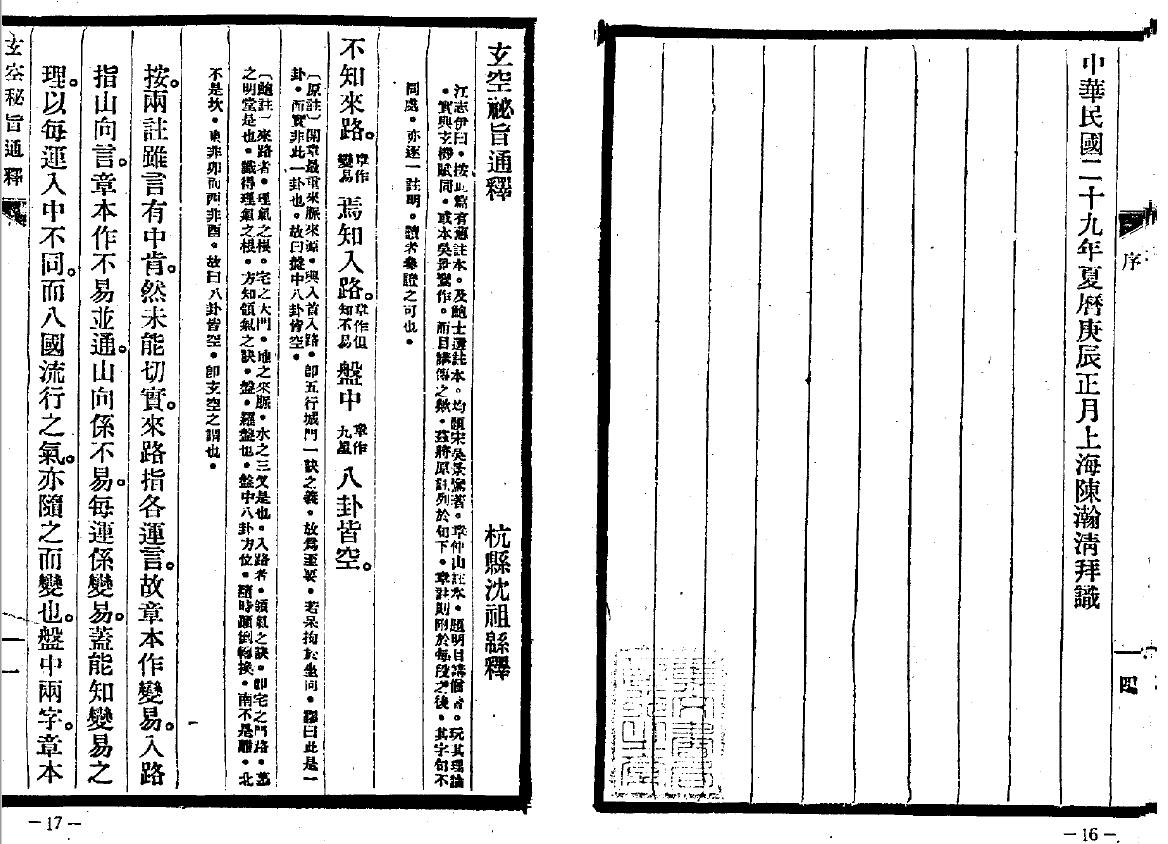 序
中華民國二十九年夏曆庚辰正月上海陳瀚清拜識
一四
—16—
玄空祕旨通釋
杭縣沈祖緜釋
江志伊曰。按此篇有舊註本。及鮑士選註本。均題宋吳景鸞著。章仲山註本。題明目講僧著。玩其理論
。實與玄機賦同。或本吳景鸞作。而目講傳之歟。茲將原註列於句下。章註則附於每段之後。其字句不
同處。亦逐一註明。讀者參證之可也。
不知來路。章作變易焉知入路。章作但知不易盤中章作九星八卦皆空。
〔原註〕開章最重來脈來源。與入首入路。卽五行城門一訣之義。故為至要。若呆拘於坐向。謬曰此是一
卦。而實非此一卦也。故曰盤中八卦皆空。
〔鮑註〕來路者。理氣之根。宅之大門。地之來脈。水之三叉是也。入路者。領氣之訣。卽宅之門路。墓
之明堂是也。識得理氣之根。方知領氣之訣。盤。羅盤也。盤中八卦方位。隨時顛倒輪換。南不是離。北
不是坎。東非卯而西非酉。故曰八卦皆空。卽玄空之謂也。
按。兩註雖言有中肯。然未能切實。來路指各運言。故章本作變易。入路
指山向言。章本作不易並通。山向係不易。每運係變易。蓋能知變易之
理。以每運入中不同。而八國流行之氣。亦隨之而變也。盤中兩字。章本
玄空秘旨通釋
一
—17—